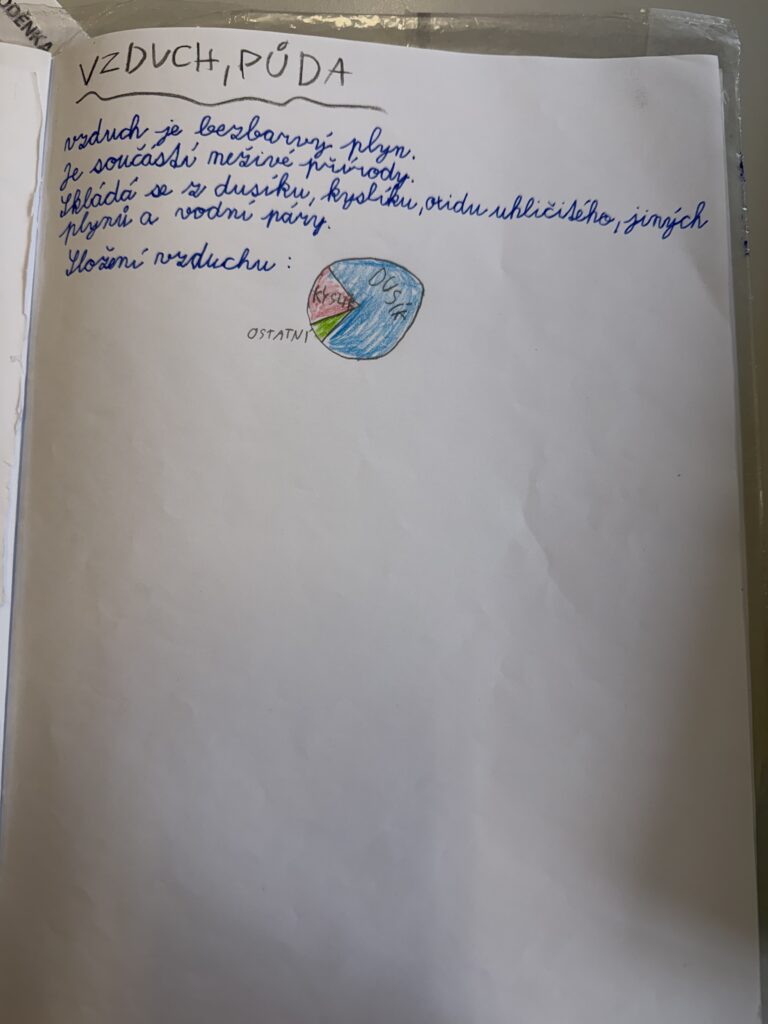 ODĚNKA
VZDUCH, PŮDA
vzduch je bezbarvý plyn.
Je součástí neživé přírody.
Skládá se z dusíku, kyslíku, oxidu uhličitého, jiných
plynů a vodní páry.
Složení vzduchu :
DUSÍK
KYSLÍK
OSTATNÍ